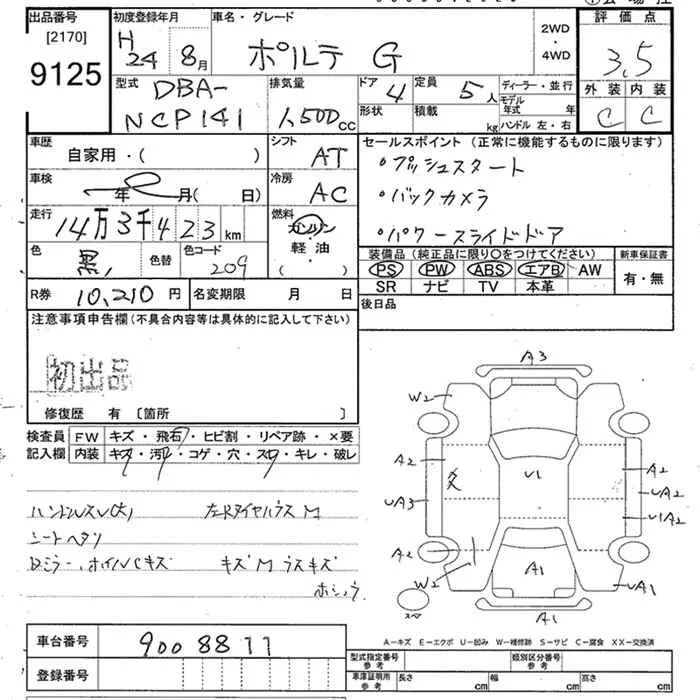 出品番号
[2170]
9125
初度登録年月
H 24 8月
車名・グレード
ポルテ G
2WD
・
4WD
評価点
3.5
外装 内装
C C
型式
DBA-
NCP141
排気量
1,500cc
ドア 4
形状
定員 5人
積載 kg
ディーラー・並行
モデル年式 年
ハンドル 左・右
車歴
自家用・( )
シフト
AT
車検
年 月( 日)
冷房
AC
走行
14万3千423km
燃料
ガソリン
軽・油
( ・ )
色
黒
色替
色コード
209
R券 10,210円
名変期限 月 日
セールスポイント(正常に機能するものに限ります)
・プッシュスタート
・バックカメラ
・パワースライドドア
装備品(純正品に限り〇をつけてください)
PS PW ABS エアB AW
SR ナビ TV 本革
新車保証書
有・無
後日品
注意事項申告欄(不具合内容等は具体的に記入して下さい)
初出品
修復歴 有 〔箇所 〕
検査員
記入欄
FW キズ・飛石・ヒビ割・リペア跡・×要
内装 キズ・汚レ・コゲ・穴・スレ・キレ・破レ
シートヘタリ
A3
W2
A2
A2
UA3
U1
UA2
U1A2
A2
W2
A1
UA1
A1
A-キズ E-エクボ U-凹み W-補修跡 S-サビ C-腐食 XX-交換済
車台番号
9008811
登録番号
型式指定番号
参考
類別区分番号
参考
車津証明用
参考
長さ cm
幅 cm
高さ cm